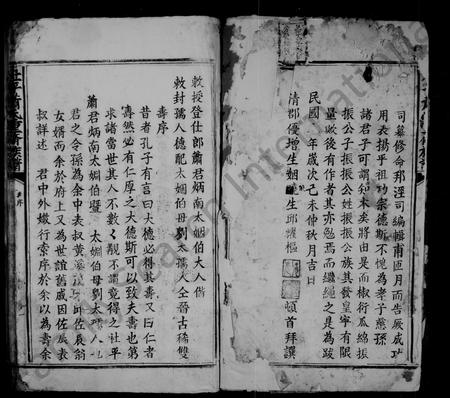 司纂修命邳涇司編輯甫匝月而告厥成功
用表揚乎祖功宗德斯不愧為孝子慈孫
諸君子可謂知本矣將由是而椒衍瓜綿振
振公子振振公姓振振公族其發皇寧有限
量歟後有作者其亦勉焉而繼繩之是為跋
民國 年歲次己未仲秋月吉日
清郡優增生姻 生邱 樞 頓首拜撰
敕授登仕郎蕭君炳南太姻伯大人偕
敕封孺人德配太姻伯母劉太孺人仝晉古稀雙
壽序
昔者孔子有言曰大德必得其壽又曰仁者
壽然必有仁厚之大德斯可以致夫壽也第
求諸當世其人不數數覯不謂竟得之社平
蕭君炳南太姻伯暨 太姻伯母劉太孺人
君之令孫為余中表叔黃 邱佐辰翁
女婿而余於府上又為世誼舊戚因佐辰表
叔詳述 君中外懿行索序於余以為壽余